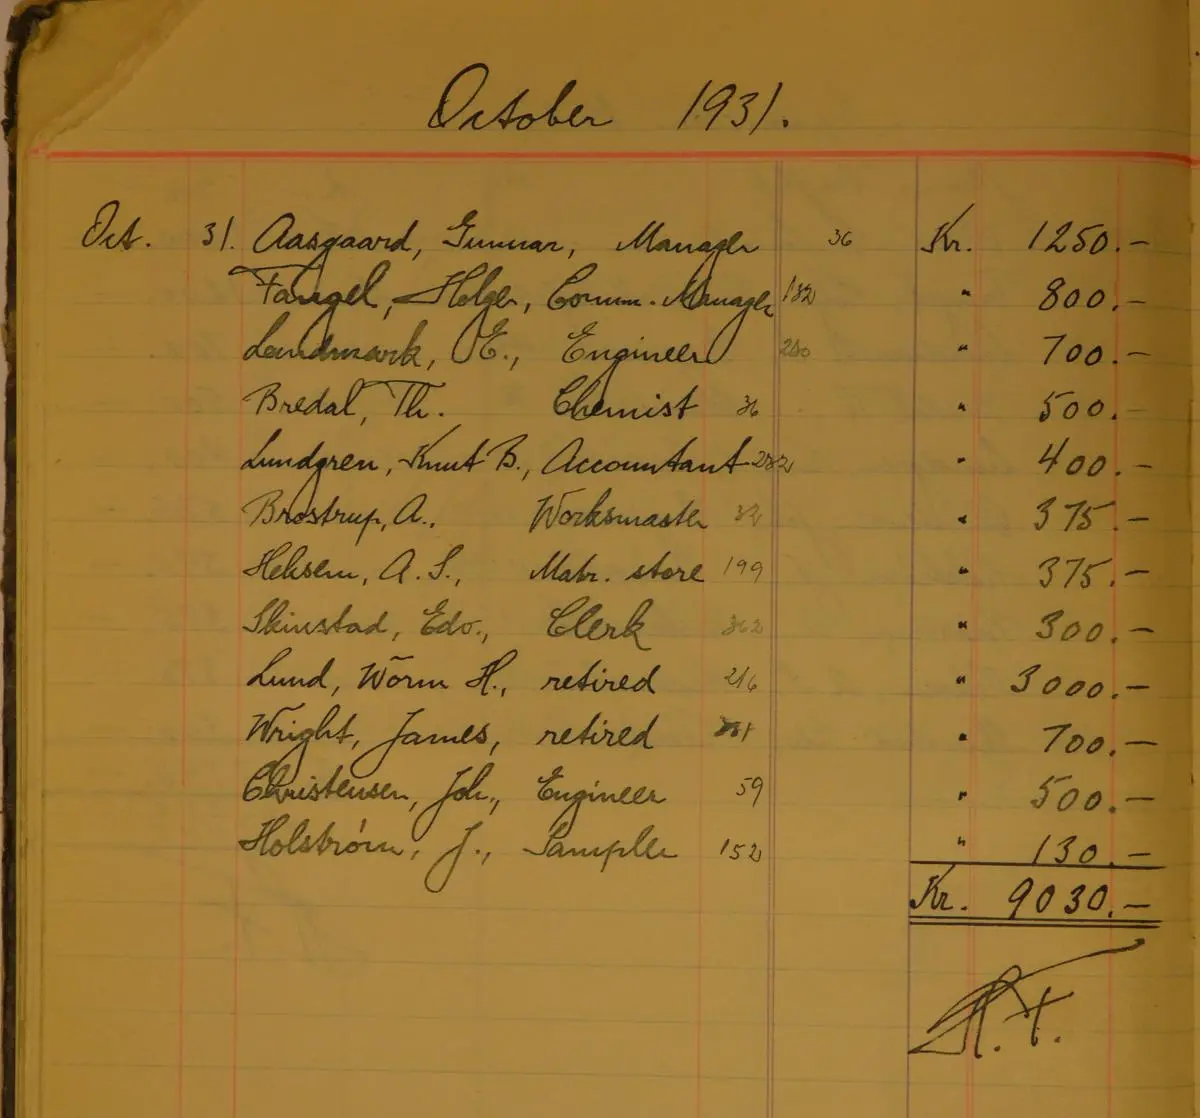 October 1931.
Oct. 31. Aasgaard, Gunnar, Manager 36 Kr. 1250.—
Fangel, Holger, Comm. Manager 132 " 800.—
Landmark, E., Engineer 280 " 700.—
Bredal, Th. Chemist 36 " 500.—
Lundgren, Knut B., Accountant " 400.—
Brostrup, A., Worksmaster 32 " 375.—
Heksem, A. S., Matr. store 199 " 375.—
Skinstad, Edv., Clerk 362 " 300.—
Lund, Worm H., retired 216 " 3000.—
Wright, James, retired " 700.—
Christensen, Joh., Engineer 59 " 500.—
Holstrøm, J., Sampler 152 " 130.—
Kr. 9030.—